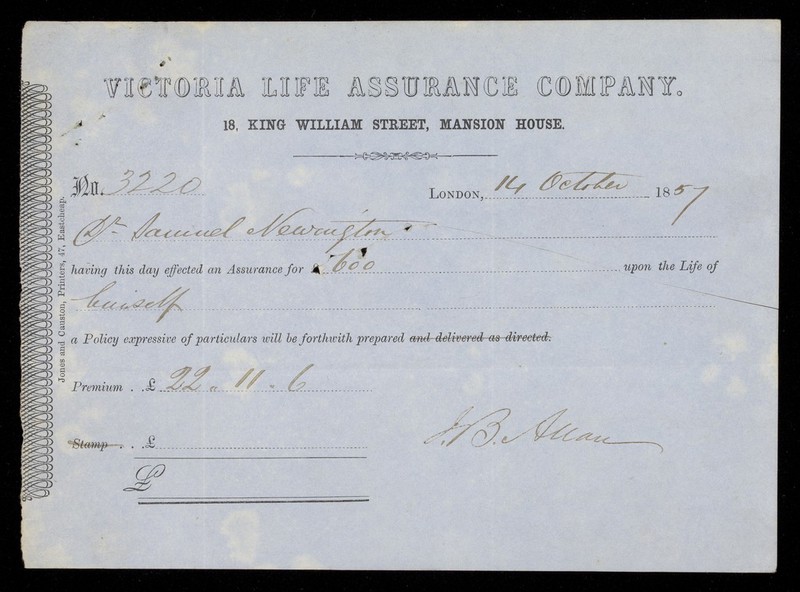 VICTORIA LIFE ASSURANCE COMPANY.
18, KING WILLIAM STREET, MANSION HOUSE.
No. 3220
LONDON, 14 October 1857
Dr Samuel Newington
having this day effected an Assurance for £ 600 upon the Life of
himself
a Policy expressive of particulars will be forthwith prepared and delivered as directed.
Premium . . £ 22 " 11 " 6
Stamp . . . £
J. B. Allan
£
Jones and Causton, Printers, 47, Eastcheap.